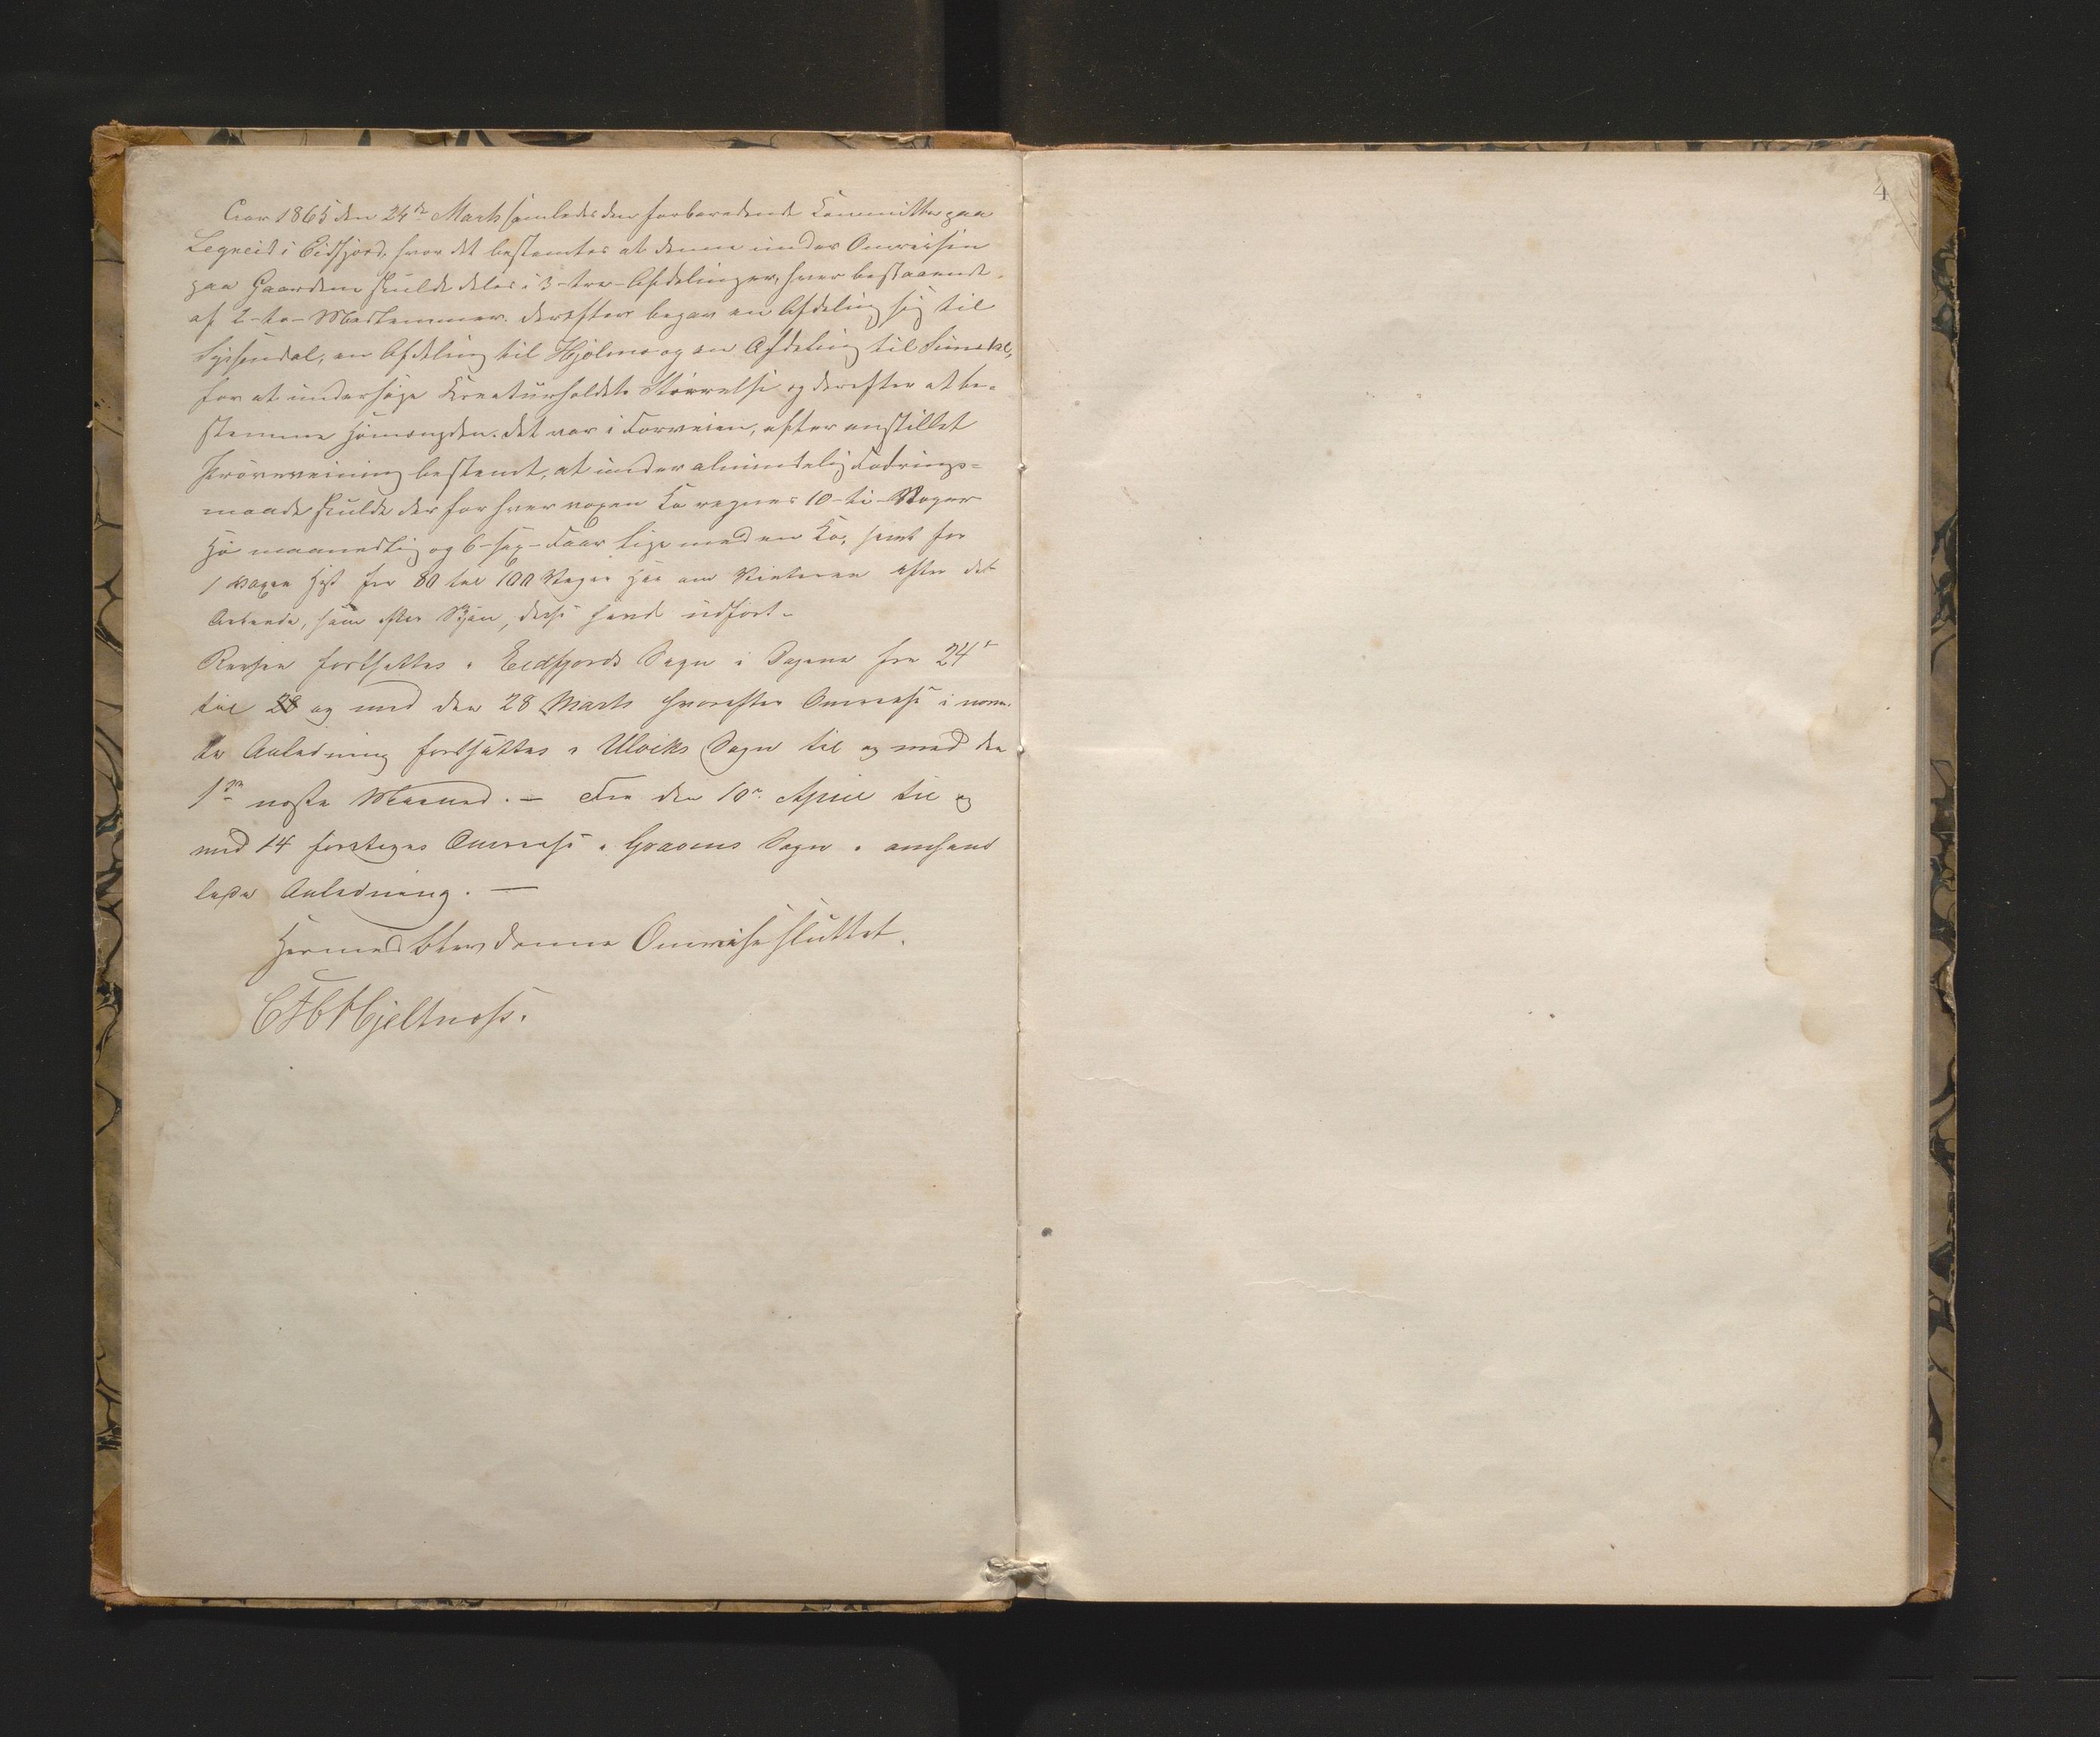 Aar 1865 den 24de Marts samledes den forberedende Committe paa
Legreid i Eidfjord, hvor det bestemtes at denne under Omreisen
paa Gaardene skulde deles i 3-tre-Afdelinger, hver bestaaende
af 2-to-Medlemmer. Derefter begav en Afdeling sig til
Syssendal, en Afdeling til Hjølmo og en Afdeling til Simedal,
for at undersøge Kreaturholdets Størrelse og derefter at be-
stemme Hømengden. Det var i Forveien, efter anstillet
Prøveveining bestemt, at under almindelig Fodrings-
maade skulde der for hver voxen Ko regnes 10-ti-Voger
Hø maanedlig og 6-sex-Faar lige med en Ko, samt for
1 voxen Hest fra 80 til 100 Voger Hø om Vinteren efter det
Arbeide, som efter Skjøn, disse havde udført.
Reisen fortsattes i Eidfjords Sogn i Dagene fra 24de
til 28 og med den 28 Marts hvorefter Omreise i nævn-
te Anledning fortsattes i Ulviks Sogn til og med den
1ste næste Maaned. — Fra den 10de April til og
med 14 foretoges Omreise i Gravens Sogn i omhand
lede Anledning. —
Hermed blev denne Omreise sluttet.
Hjeltnæss.
4